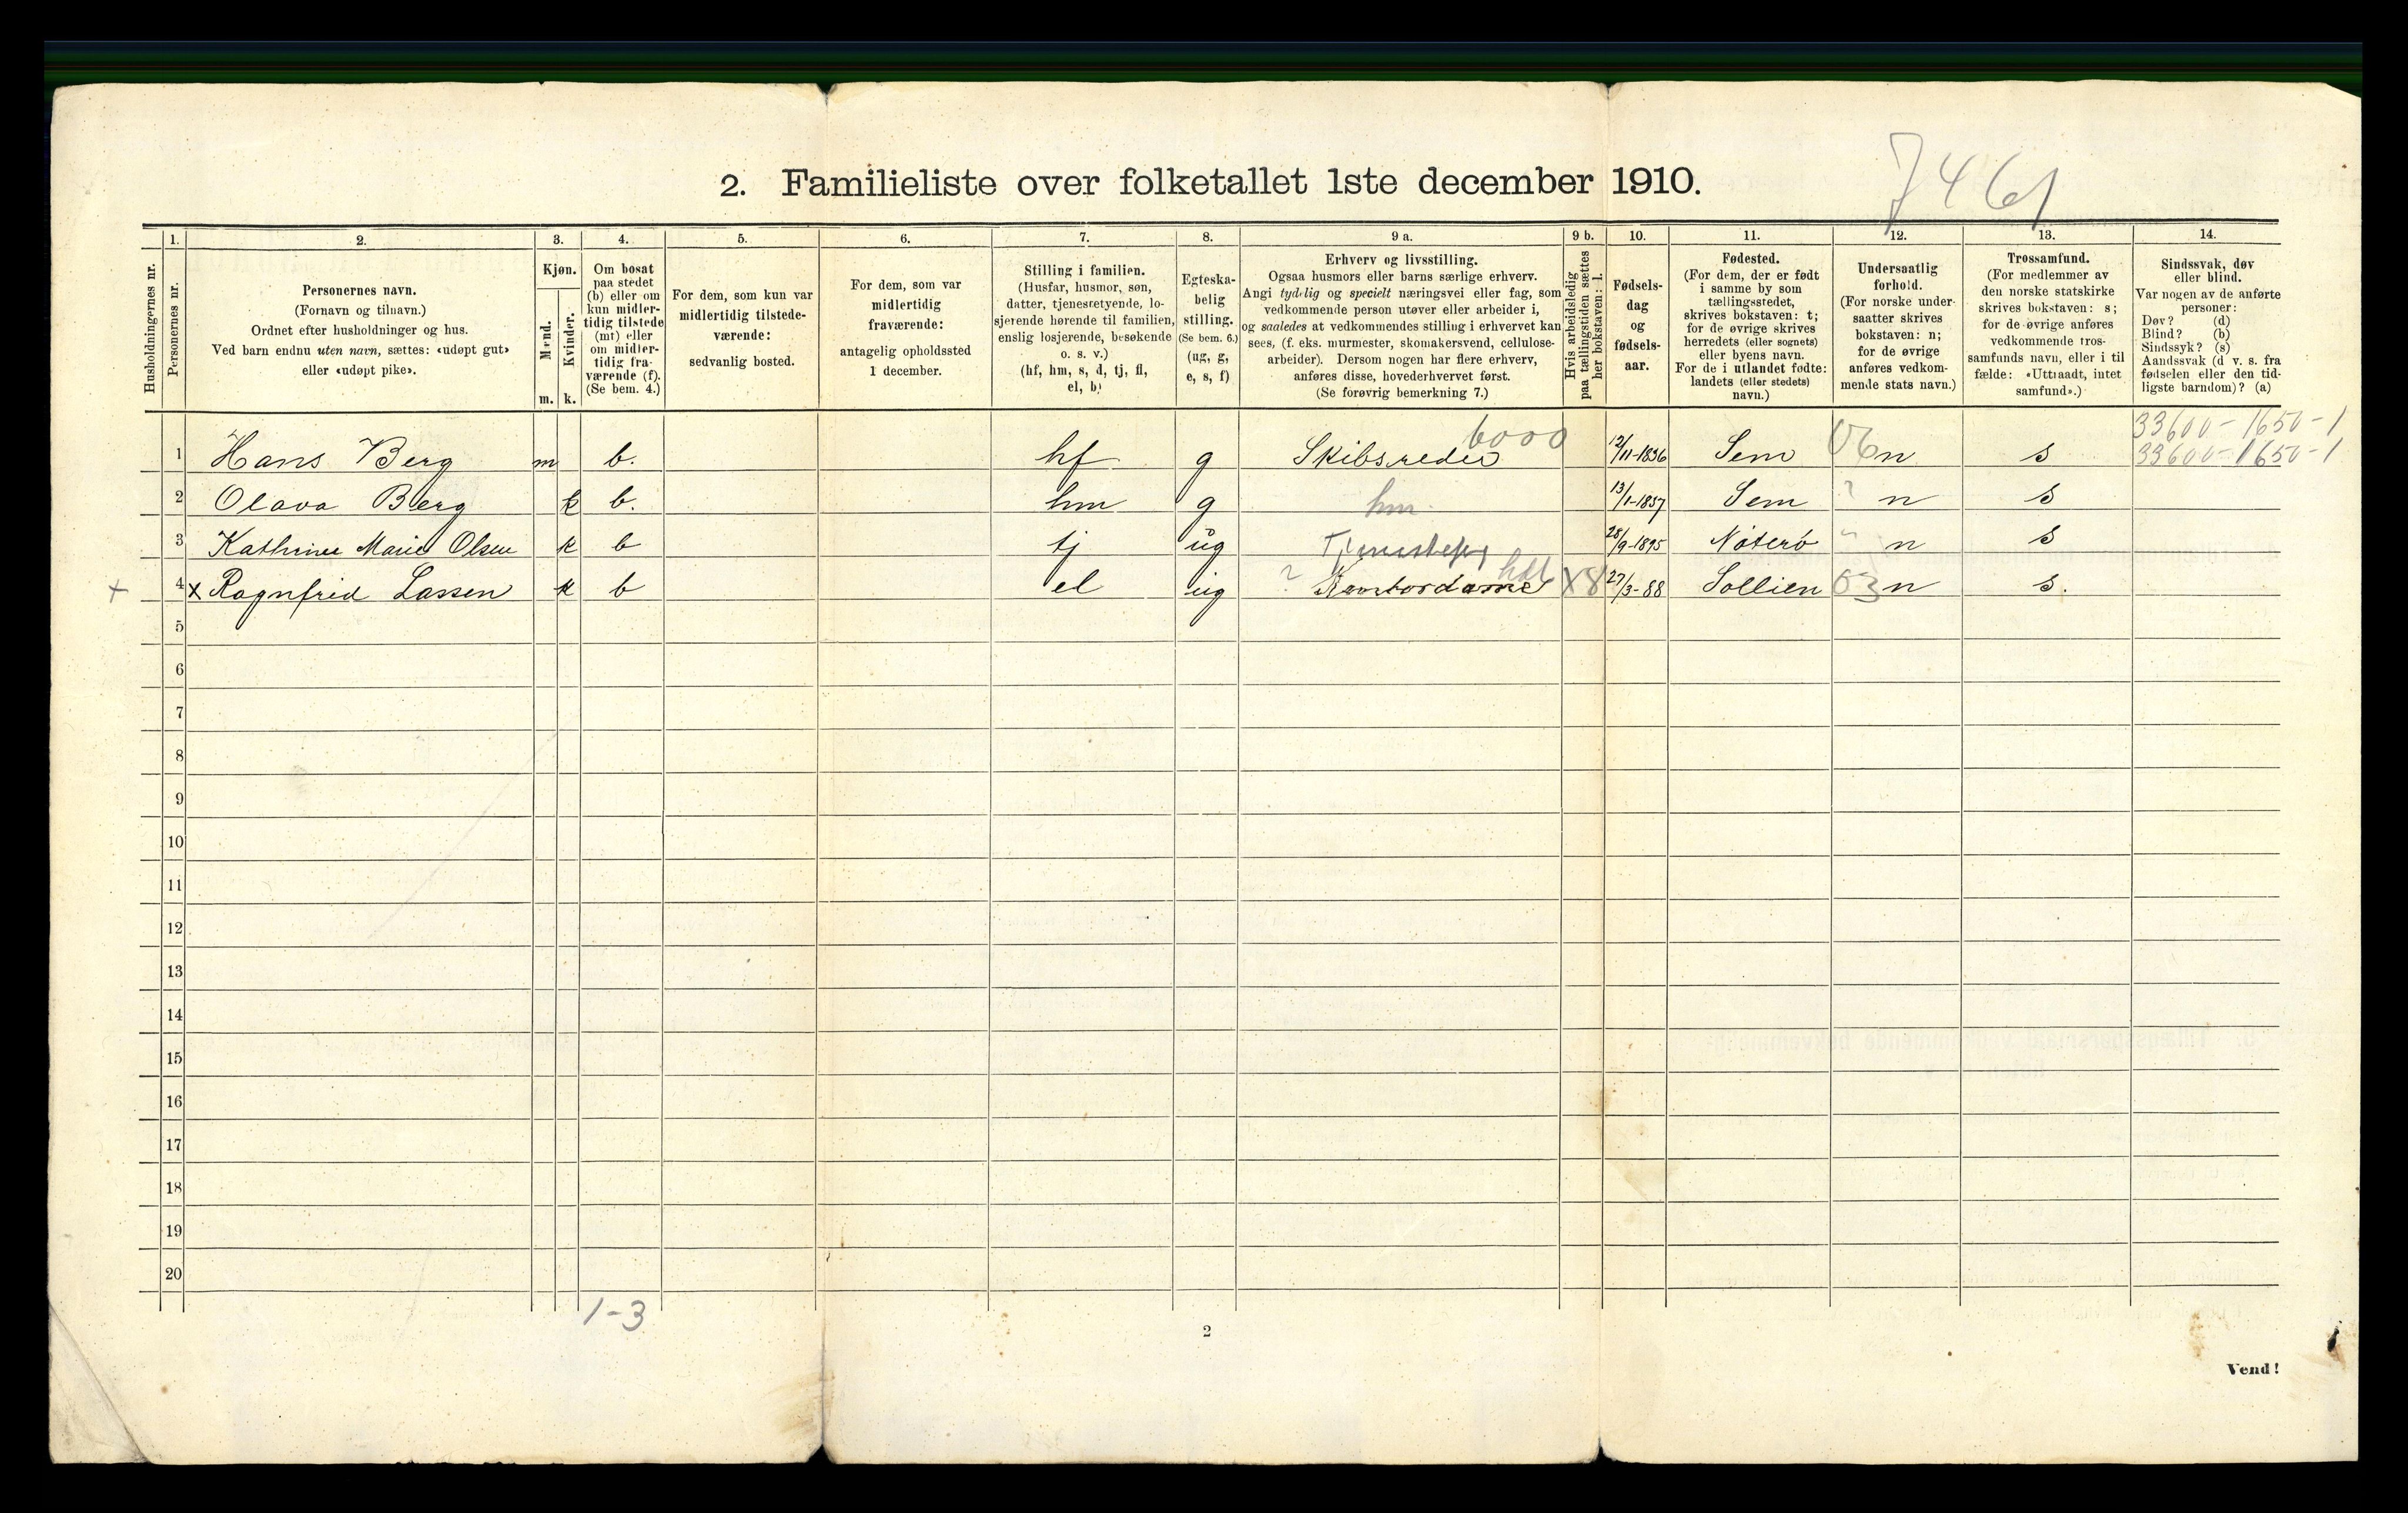 7461
2. Familieliste over folketallet 1ste december 1910.
Husholdningernes nr.
1.
Personernes nr.
2.
Personernes navn.
(Fornavn og tilnavn.)
Ordnet efter husholdninger og hus.
Ved barn endnu uten navn, sættes: «udøpt gut»
eller «udøpt pike».
3.
Kjøn.
Mænd.
Kvinder.
m. k.
4.
Om bosat
paa stedet
(b) eller om
kun midler-
tidig tilstede
(mt) eller
om midler-
tidig fra-
værende (f).
(Se bem. 4.)
5.
For dem, som kun var
midlertidig tilstede-
værende:
sedvanlig bosted.
6.
For dem, som var
midlertidig
fraværende:
antagelig opholdssted
1 december.
7.
Stilling i familien.
(Husfar, husmor, søn,
datter, tjenestetyende, lo-
sjerende hørende til familien,
enslig losjerende, besøkende
o. s. v.)
(hf, hm, s, d, tj, fl,
el, b)
8.
Egteska-
belig
stilling.
(Se bem. 6.)
(ug, g,
e, s, f)
9 a.
Erhverv og livsstilling.
Ogsaa husmors eller barns særlige erhverv.
Angi tydelig og specielt næringsvei eller fag, som
vedkommende person utøver eller arbeider i,
og saaledes at vedkommendes stilling i erhvervet kan
sees, (f. eks. murmester, skomakersvend, cellulose-
arbeider). Dersom nogen har flere erhverv,
anføres disse, hovederhvervet først.
(Se forøvrig bemerkning 7.)
9 b.
Hvis arbeidsledig
paa tællingstiden sættes
her bokstaven: l.
10.
Fødsels-
dag
og
fødsels-
aar.
11.
Fødested.
(For dem, der er født
i samme by som
tællingsstedet,
skrives bokstaven: t;
for de øvrige skrives
herredets (eller sognets)
eller byens navn.
For de i utlandet fødte:
landets (eller stedets)
navn.)
12.
Undersaatlig
forhold.
(For norske under-
saatter skrives
bokstaven: n;
for de øvrige
anføres vedkom-
mende stats navn.)
13.
Trossamfund.
(For medlemmer av
den norske statskirke
skrives bokstaven: s;
for de øvrige anføres
vedkommende tros-
samfunds navn, eller i til-
fælde: «Uttraadt, intet
samfund».)
14.
Sindssvak, døv
eller blind.
Var nogen av de anførte
personer:
Døv? (d)
Blind? (b)
Sindssyk? (s)
Aandssvak (d v. s. fra
fødselen eller den tid-
ligste barndom)? (a)
6000 33600-1650-1
1 Hans Berg m b. hf g Skibsreder 12/11-1836 Sem 06 n s 33600-1650-1
2 Olava Berg k b. hm g hm. 13/1-1837 Sem " n s
3 Kathrine Marie Olsen k b tj ug Tjenestepig 28/9-1895 Nøterø " n s
+ 4 x Ragnfrid Lassen k b el ug ? Kontordame hdl X8 27/3-88 Sollien 03 n s.
5
6
7
8
9
10
11
12
13
14
15
16
17
18
19
20
1-3
2
Vend!